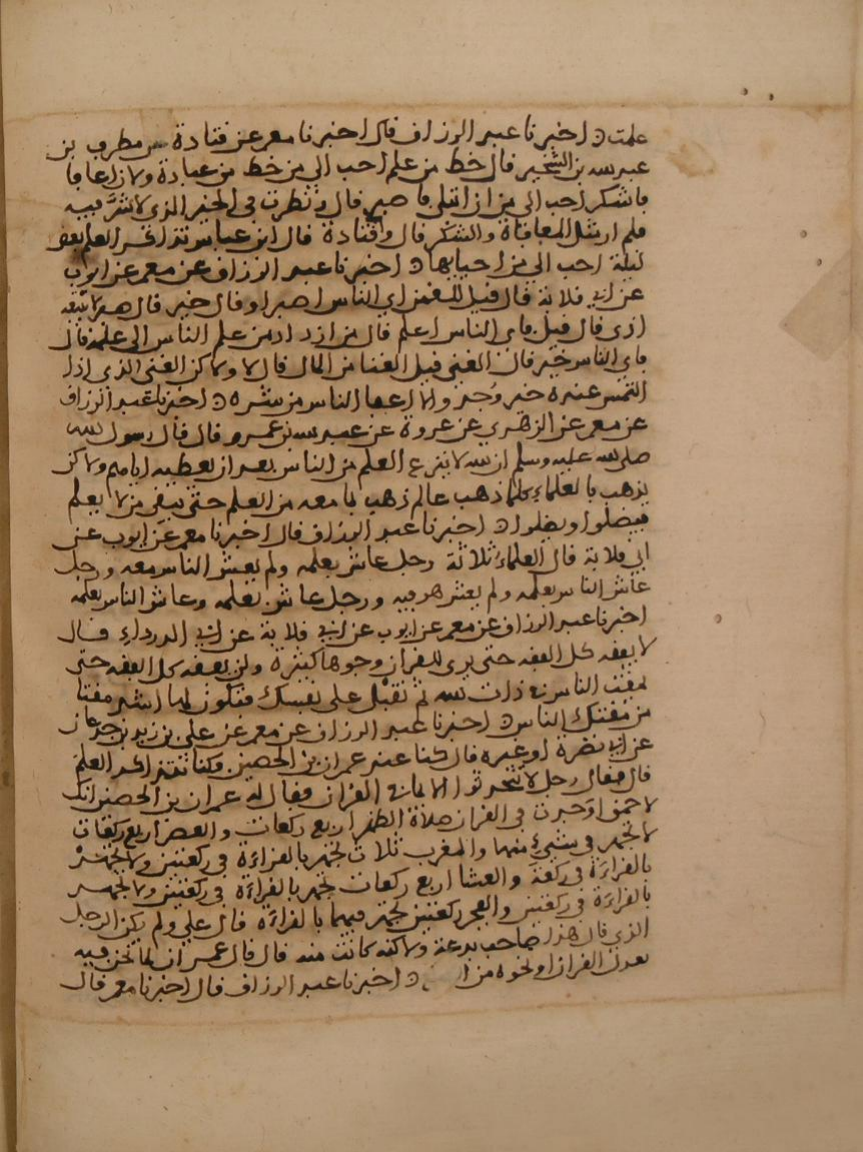 علمت ه اخبرنا عبد الرزاق قال اخبرنا معمر عن قتادة عن مطرف بن
عبد الله بن الشخير قال حظ من علم احب الي من حظ من عبادة ولان اعافا
فاشكر احب الي من ان ابتلى فاصبر قال ونظرت في الخير الذي لا شر فيه
فلم ار مثل المعافاة والشكر قال وقتادة قال ابن عباس تذاكر العلم بعض
ليلة احب الي من احيايها ه اخبرنا عبد الرزاق عن معمر عن ايوب
عن ابي قلابة قال قيل للقمن اي الناس اصبر او قال خير قال صبر لا يتبعه
اذى قال قيل فاي الناس اعلم قال من ازداد من علم الناس الى علمه قال
فاي الناس خير قال الغني قيل الغنا من المال قال لا ولاكن الغني الذي اذا
التمس عنده خير وجد والا اعفا الناس من شره ه اخبرنا عبد الرزاق
عن معمر عن الزهري عن عروة عن عبد الله بن عمرو قال قال رسول الله
صلى الله عليه وسلم ان الله لا ينزع العلم من الناس بعد ان يعطيه اياهم ولاكن
يذهب بالعلماء كلما ذهب عالم ذهب بما معه من العلم حتى يبقى من لا يعلم
فيضلوا ويضلوا ه اخبرنا عبد الرزاق قال اخبرنا معمر عن ايوب عن
ابي قلابة قال العلماء ثلاثة رجل عاش بعلمه ولم يعش الناس معه ورجل
عاش الناس بعلمه ولم يعش هو فيه ورجل عاش بعلمه وعاش الناس بعلمه
اخبرنا عبد الرزاق عن معمر عن ايوب عن ابي قلابة عن ابي الدرداء قال
لا يفقه كل الفقه حتى يرى للقران وجوها كثيرة ولن يفقه كل الفقه حتى
يمقت الناس في ذات الله ثم تقبل على نفسك فتكون لها اشد مقتا
من مقتك الناس ه اخبرنا عبد الرزاق عن معمر عن علي بن زيد بن جدعان
عن ابي نضرة او غيره قال كنا عند عمران بن الحصين وكنا نتذاكر العلم
قال فقال رجل لا تتحدثوا الا بما في القران فقال له عمران بن الحصين انك
لاحمق اوجدت في القران صلاة الظهر اربع ركعات والعصر اربع ركعات
لا تجهر في شيء منها والمغرب ثلاث تجهر بالقراءة في ركعتين ولا تجهر
بالقراءة في ركعة والعشا اربع ركعات تجهر بالقراءة في ركعتين ولا تجهر
بالقراءة في ركعتين والفجر ركعتين تجهر فيهما بالقراءة قال علي ولم يكن الرجل
الذي قال هذا صاحب بدعة ولاكنه كانت منه قال قال عمران لما نحن فيه
يعدل القران او نحوه من ه اخبرنا عبد الرزاق قال اخبرنا معمر قال